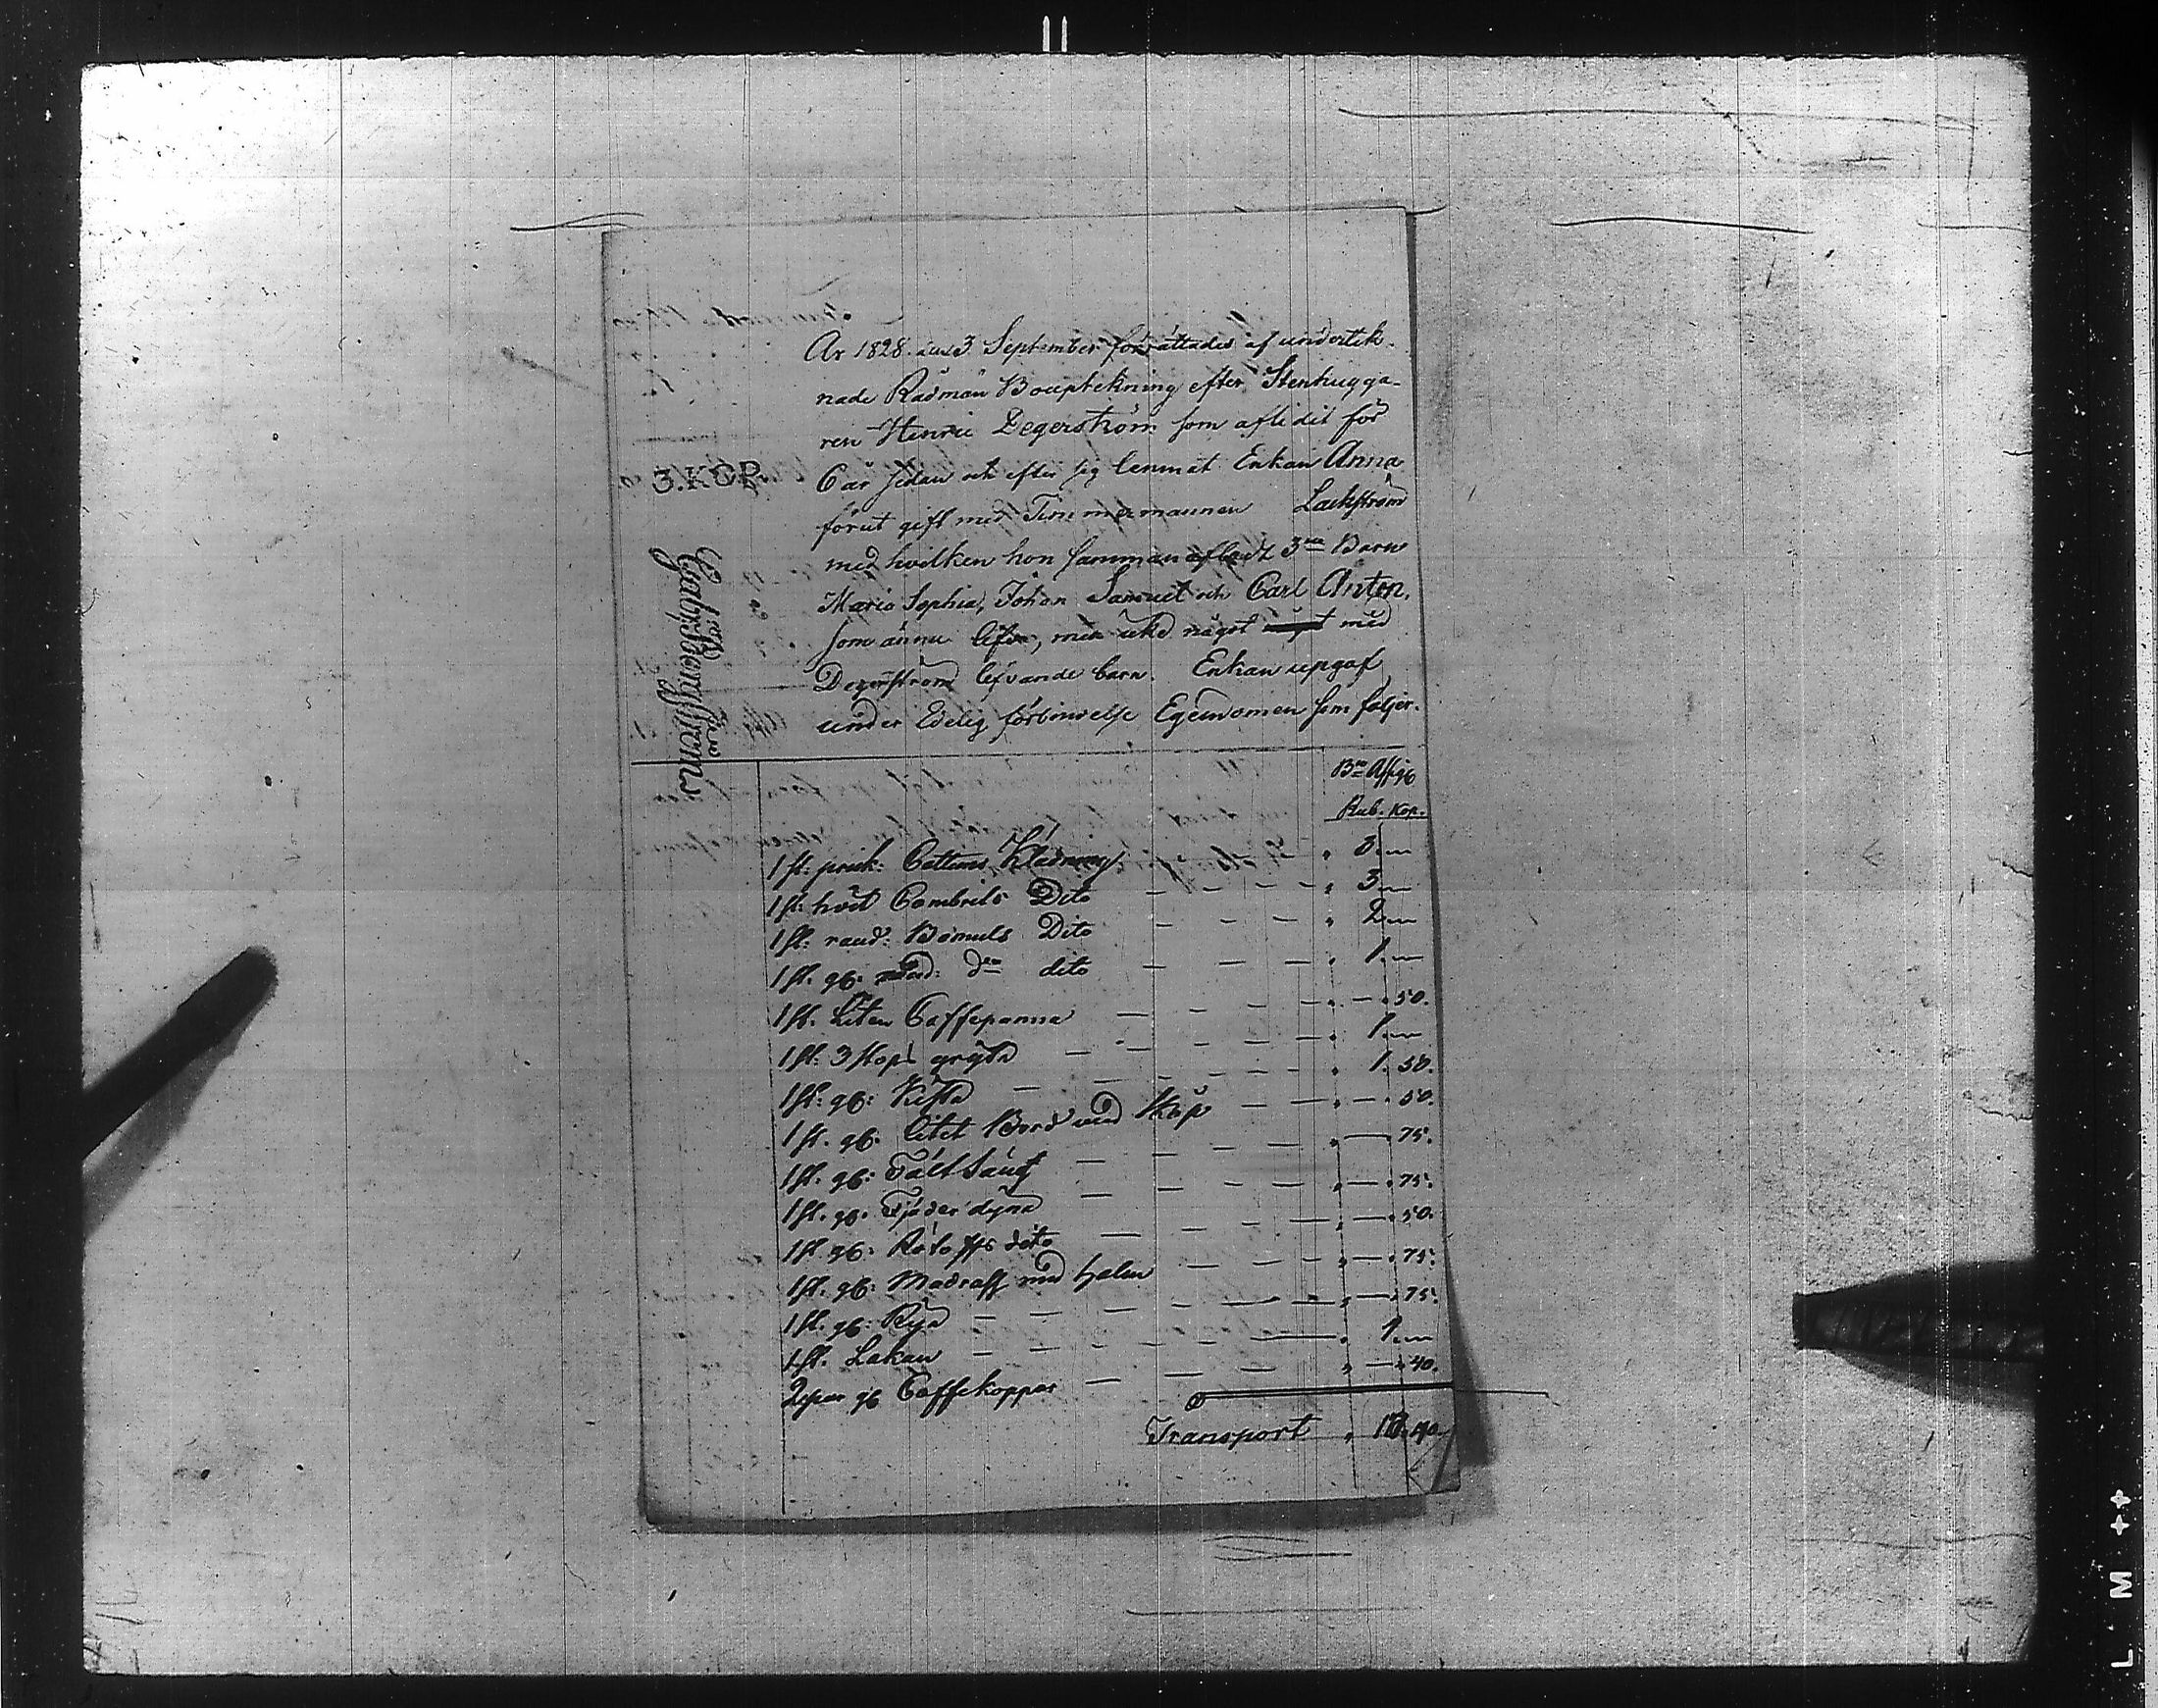 År 1828 den 3 September förrättades af undertek-
nade Rådman Bouptekning efter Stenhugga-
ren Henric Degerström som aflidit för
6 år sedan och efter sig lemnat Enkan Anna
förut gift med Timmermannen Lackström
med hvilken hon samman afladt 3ne Barn
Maria Sophia, Johan Samuel och Carl Anton,
som ännu lefva, men icke något med
Degerström lefvande barn. Enkan upgaf
under Edelig förbindelse Egendomen som följer.
3. KOP.
Bco Assig
Rub. Kop.
1 st: prick: Cattuns Klädning " 3. —
1 st: hvit Cambriks Dito — — — " 3 —
1 st: rand: Bomuls Dito — — — " 2. —
1 st. gb: dn dito — — — " 1. —
1 st. Liten Caffepanna — — — " — . 50.
1 st: 3 stops gryta — — — " 1. —
1 st: gb: Kista — — — " 1. 50.
1 st. gb. litet Bord med Skåp — — " — . 50.
1 st. gb: Tält Säng — — — " — . 75.
1 st. gb. Fjäder dyna — — — " — . 75.
1 st. gb: dito — — — " — . 50.
1 st. gb: Madrass med halm — — — " — . 75.
1 st. gb: Rya — — — " — . 75.
1 st. Lakan — — — " 1. —
2 par gb Caffekoppar — — — " — . 40.
Transport "